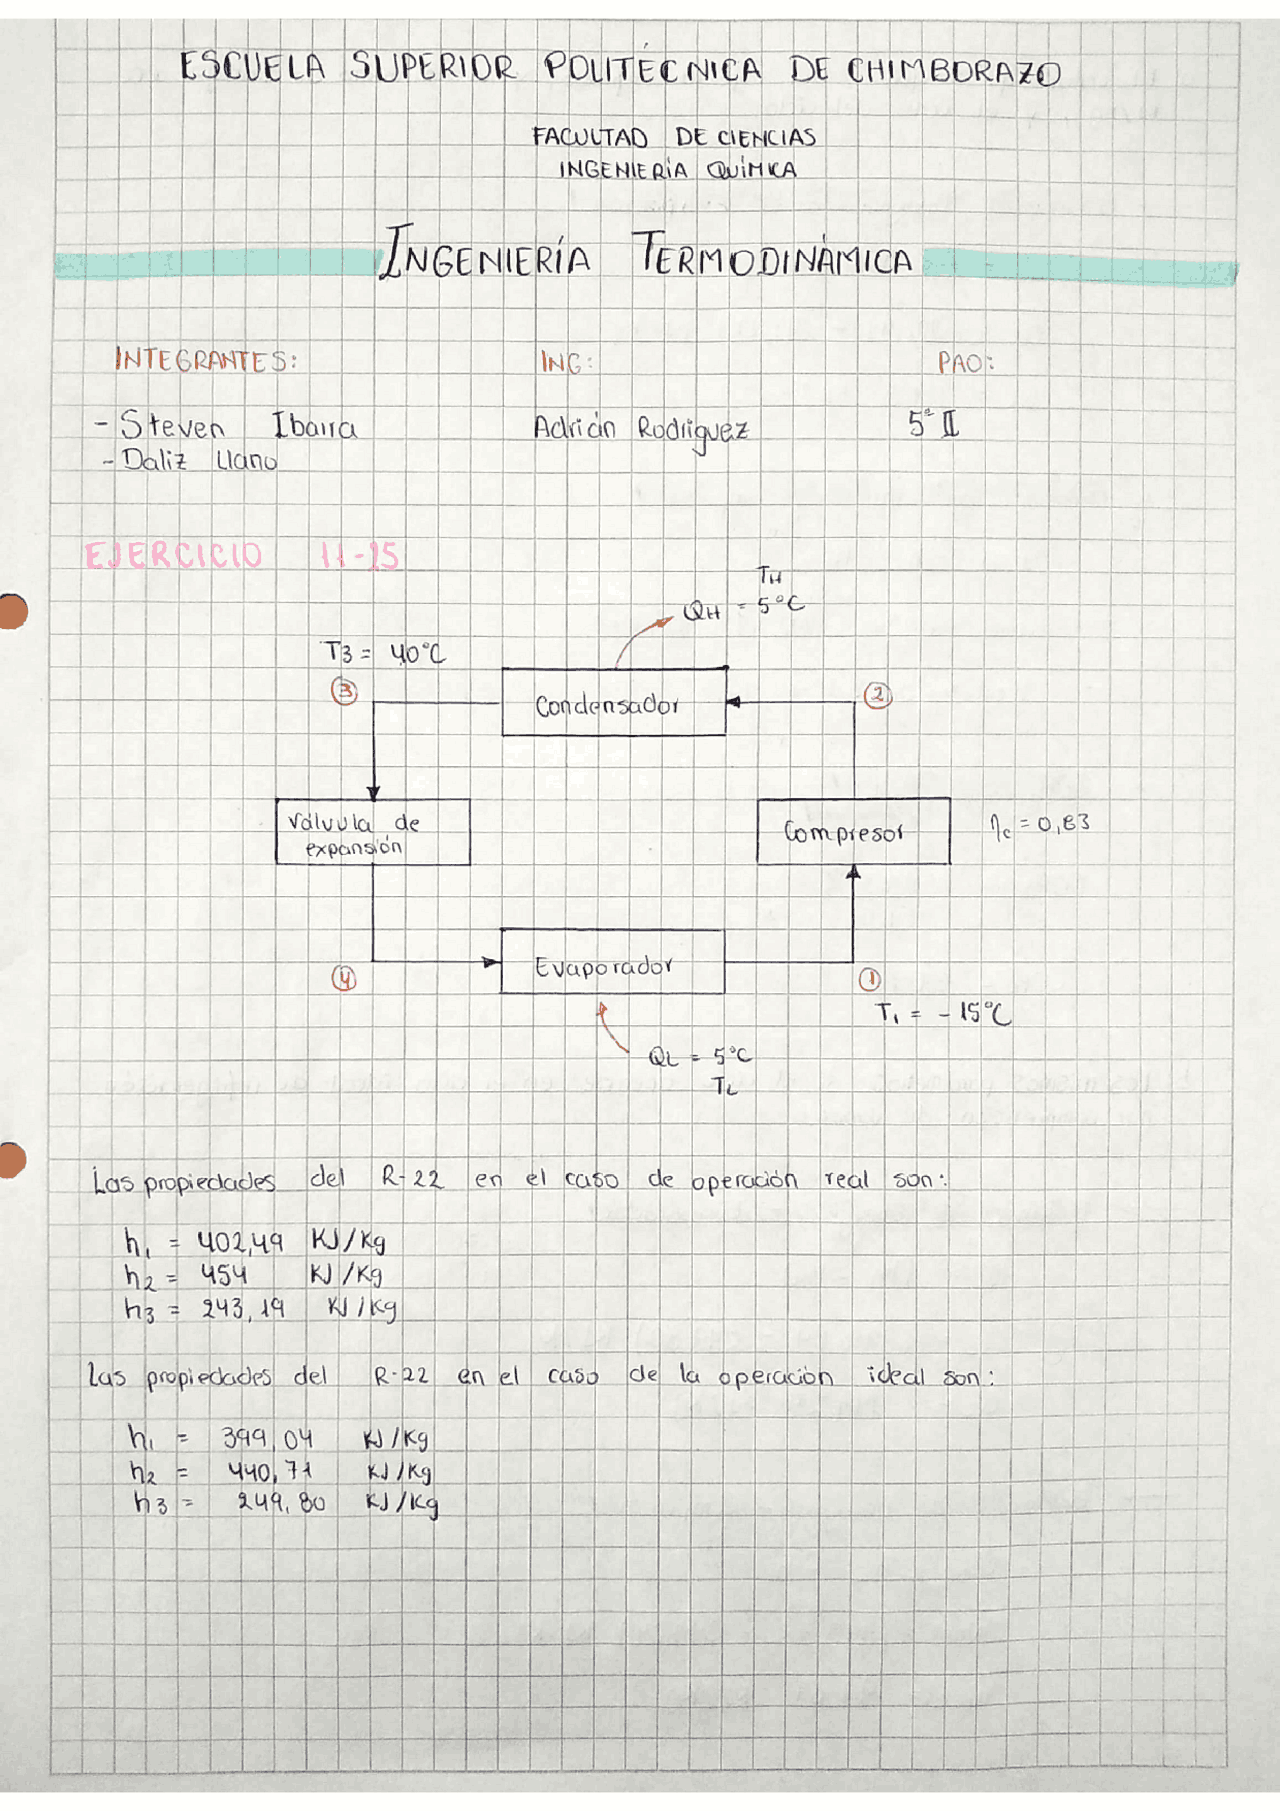 ESCUELA SUPERIOR POLITÉCNICA DE CHIMBORAZO
FACULTAD DE CIENCIAS
INGENIERÍA QUÍMICA
INGENIERÍA TERMODINÁMICA
INTEGRANTES: ING: PAO:
- Steven Ibarra Adrián Rodríguez 5º II
- Daliz Llano
EJERCICIO 11-15
TH
QH = 5°C
T3 = 40°C
3
Condensador
2
Válvula de
expansión
Compresor
ηc = 0,83
4
Evaporador
1
T1 = -15°C
QL = 5°C
TL
Las propiedades del R-22 en el caso de operación real son:
h1 = 402,49 KJ/Kg
h2 = 454 KJ/Kg
h3 = 243,19 KJ/Kg
Las propiedades del R-22 en el caso de la operación ideal son:
h1 = 399,04 KJ/Kg
h2 = 440,71 KJ/Kg
h3 = 249,80 KJ/Kg